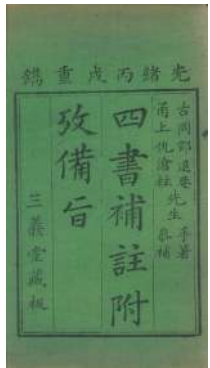 光緒丙戌重鐫
古岡鄧退菴先生手著
甬上仇滄柱參補
四書補註附
攷備旨
三義堂藏板